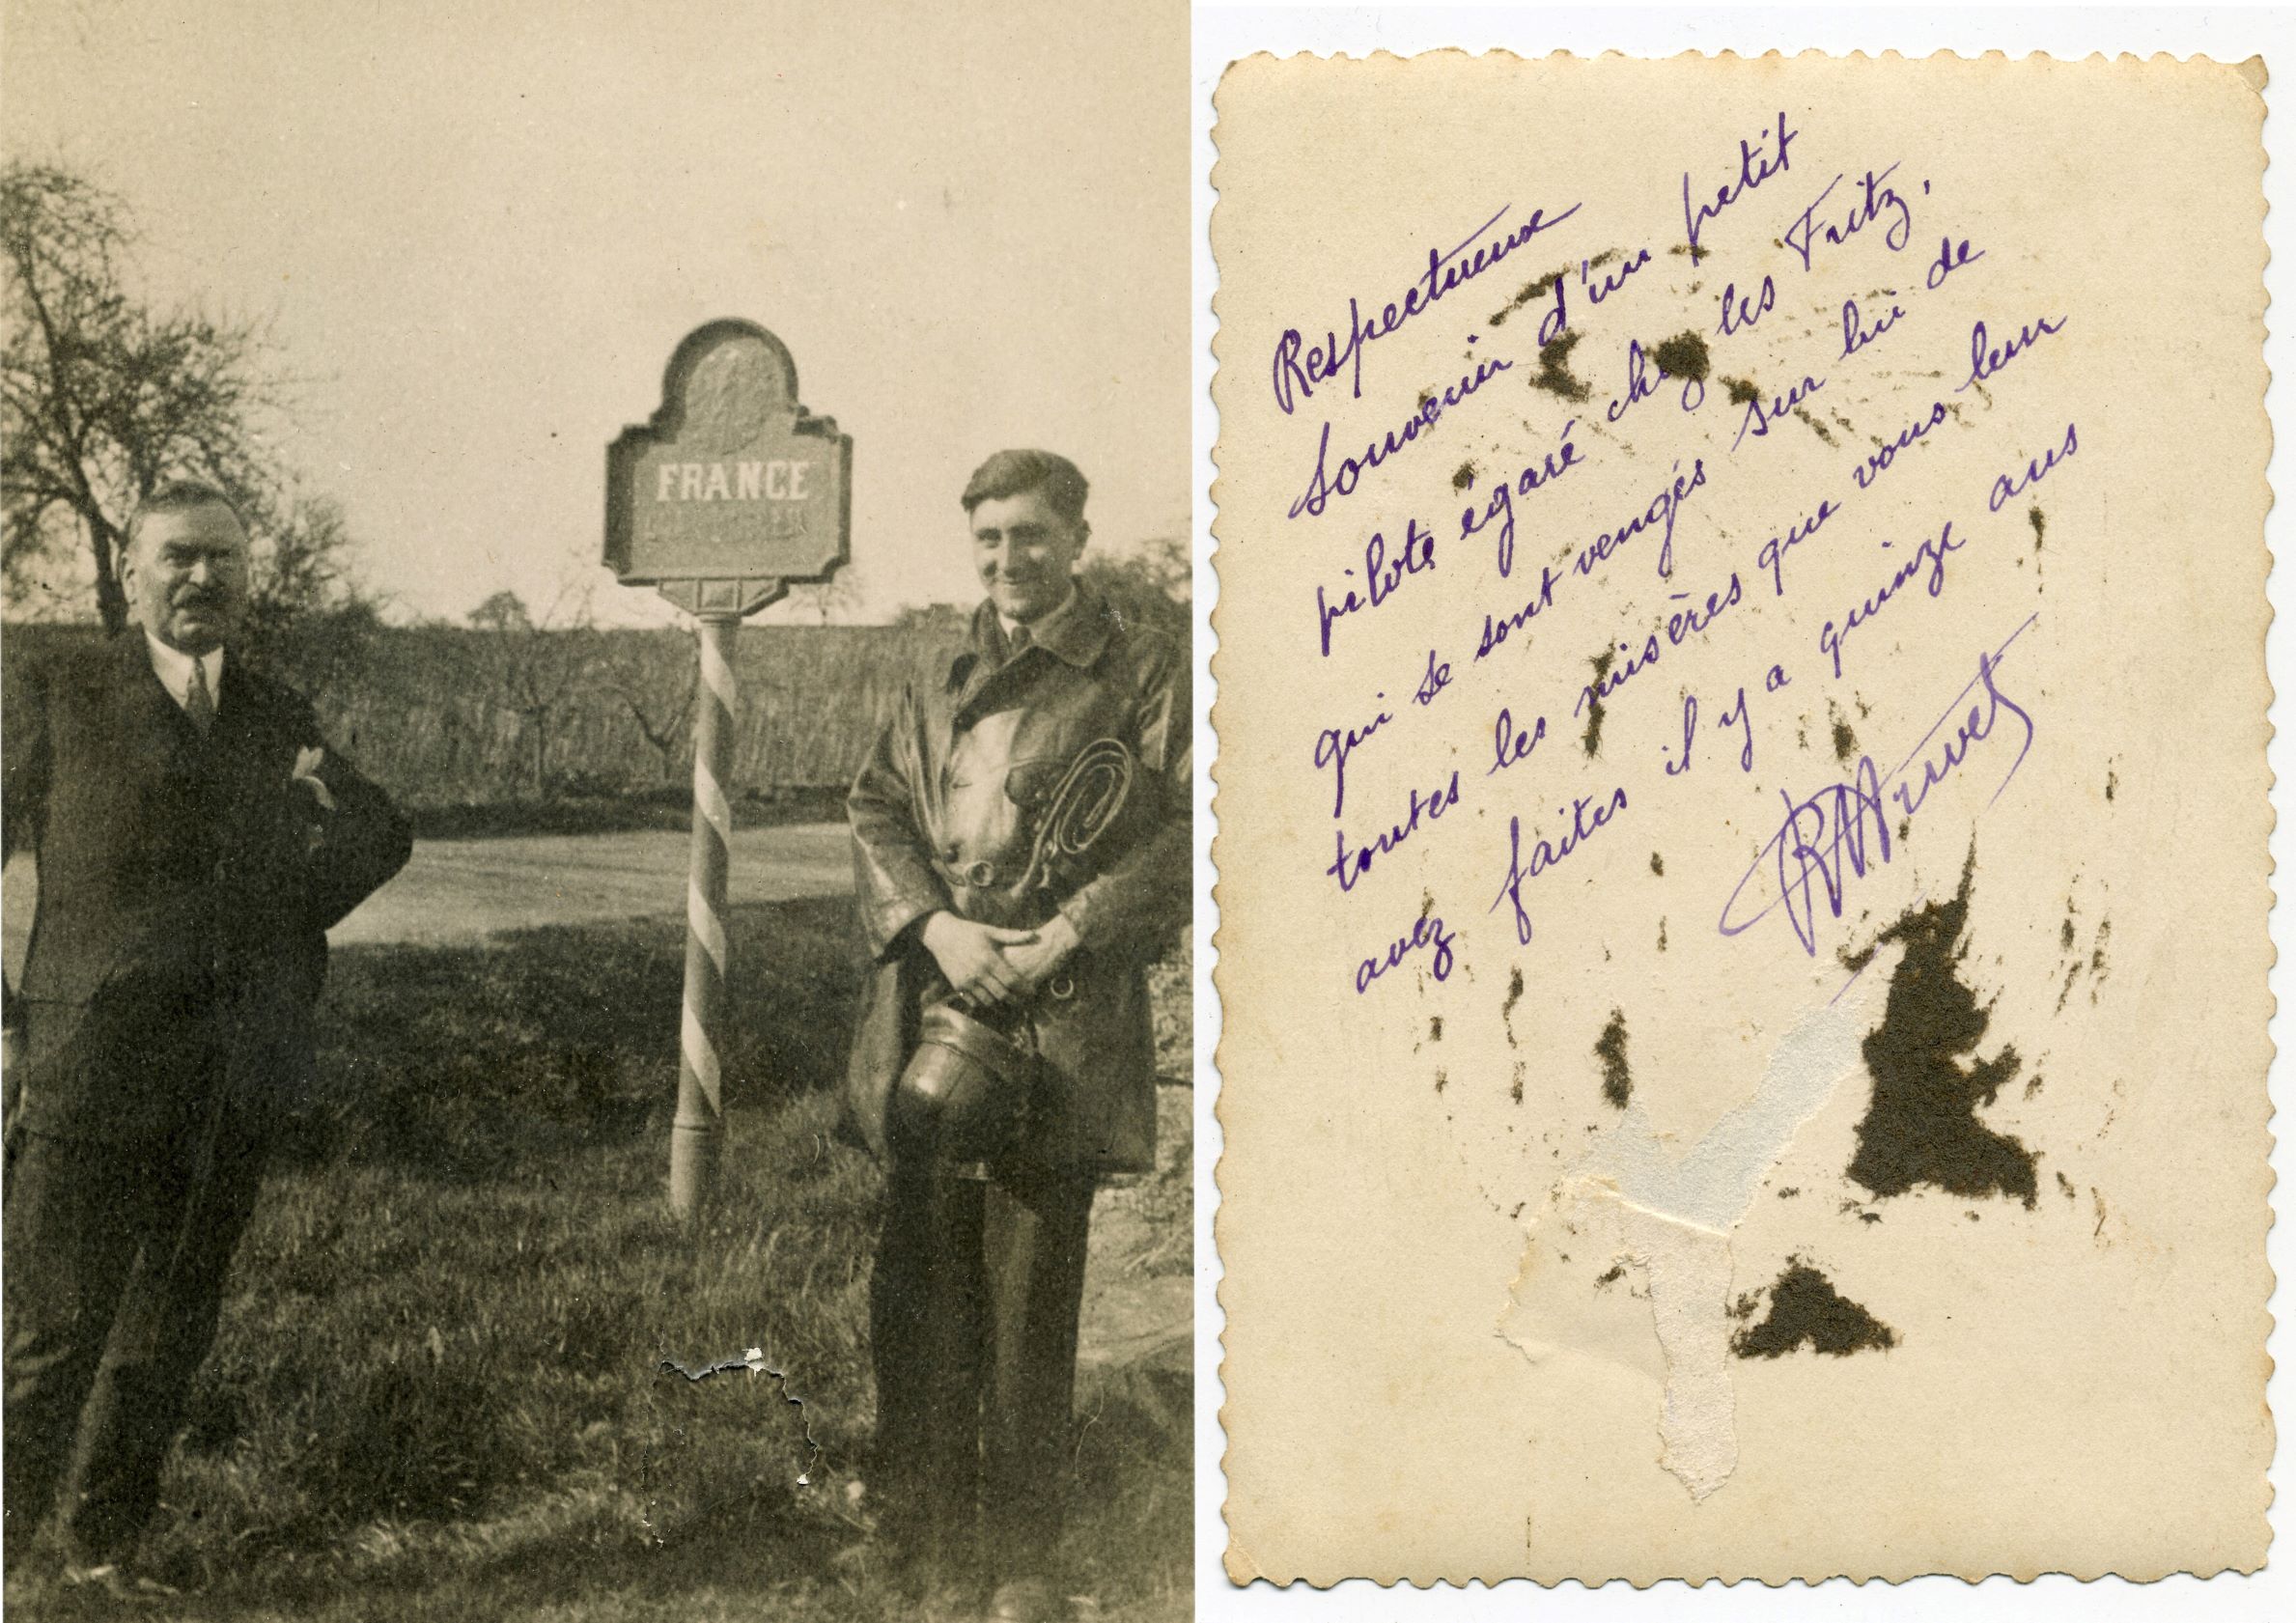 FRANCE
Respectueux
Souvenir d'un petit
pilote égaré chez les Fritz,
qui se sont vengés sur lui de
toutes les misères que vous leur
avez faites il y a quinze ans